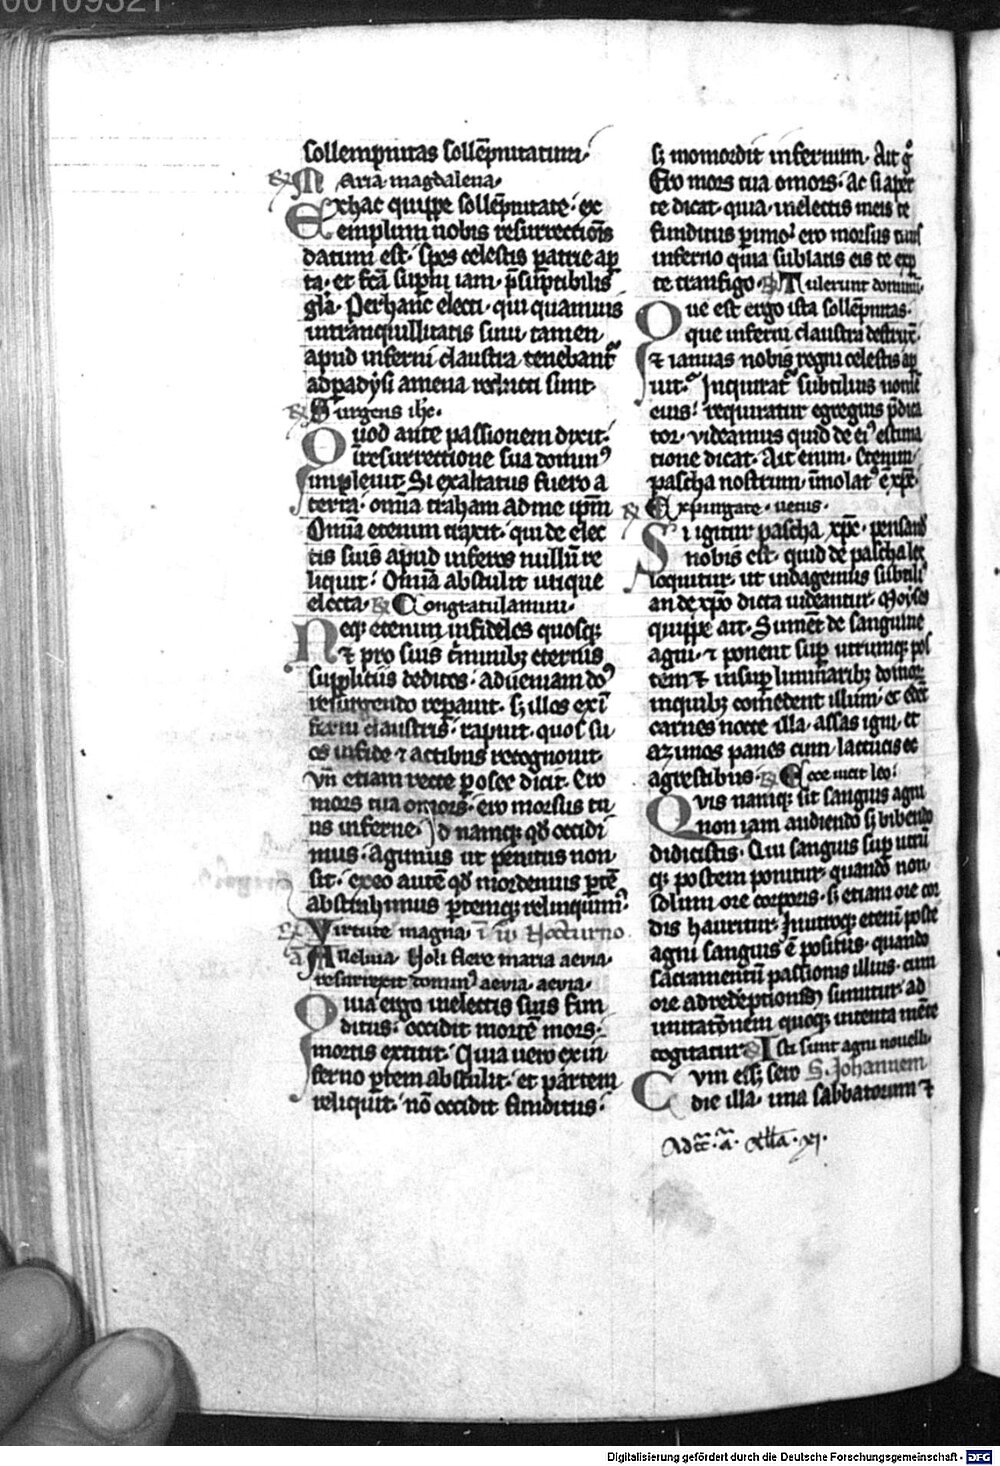 00109321
sollempnitas sollēpnitatum·
℟ Maria magdalena·
Exhac quippe sollēpnitate· ex
emplum nobis resurrectiōis
datum est· spes celestis patrie ap
ta· et fc̄a sup̄ni iam· p̄sūptibilis
gl̄a· Per hanc electi· qui quamuis
intranquillitatis sinu tamen
apud inferni claustra tenebant᷑
ad padysi amena reducti sunt·
℟ Surgens ihc·
Quod ante passionem dixit·
ī resurrectione sua domin᷒
impleuit· Si exaltatus fuero a
terra· omīa traham ad me ip̄m
Omīa etenim traxit· qui de elec
tis suis apud inferos nullū re
liquit· Omīa abstulit utique
electa· ℟ Congratulamini·
Neq; etenim infideles quosq;
⁊ pro suis cīminib; eternis
suppliciis deditos· ad ueniam do᷒
resurgendo repauit· s; illos ex ī
ferni claustris· rapuit· quos su
os in fide ⁊ actibus recognouit·
Vn̄ etiam recte p osee dicit· Ero
mors tua o mors· ero morsus tu
us inferne· Id namq; qd̄ occidi
mus· agimus ut penitus non
sit· ex eo autē qd̄ mordemus ptē
abstrahimus ptemq; relinquim᷒·
℟ Virtute magna· ī iii Nocturno
a Alleluia· Noli flere maria aevia·
resurrexit domin᷒ aevia· aevia·
Quia ergo in electis suis fun
ditus· occidit mortē mors·
mortis extitit· Quia uero ex in
ferno ptem abstulit· et partem
reliquit· nō occidit funditus·
s; momordit infernum· Ait g̊
Ero mors tua o mors· Ac si aper
te dicat· quia· in electis meis te
funditus pimo· ero morsus tuus
inferno quia sublatis eis te exp
te transfigo· ℟ Tulerunt dominū·
Que est ergo ista sollēpnitas·
que inferni claustra destruit·
⁊ ianuas nobis regni celestis ap
uit· Inquirat᷑ subtilius nomē
eius· requiratur egregius p̄dica
tor· videamus quid de ei᷒ estima
tione dicat· Ait enim· Etenim
pascha nostrum īmolat᷒ ē xp̄c·
℟ Expurgate· uetus·
Si igitur pascha xp̄c· pensand
nobis est· quid de pascha lex
loquitur· ut indagemus subtili᷒
an de xp̄o dicta uideantur· Moyses
quippe ait· Sument de sanguine
agni· ⁊ ponent sup utrumq; pos
tem ⁊ in sup luminarib; domoꝝ
in quib; comedent illum· et edēt
carnes nocte illa· assas igni· et
azimos panes cum lactucis ec
agrestibus· ℟ Ecce uicit leo·
Quis namq; sit sanguis agni
non iam audiendo s; bibendo
didicistis· Qui sanguis sup utrū
q; postem ponitur· quando non·
solum ore corporis· s; etiam ore cor
dis hauritur· In utroq; eteni poste
agni sanguis ē positus· quando
sacramentū passionis illius· cum
ore ad redēptionem sumitur· ad
imitatōnem quoq; intenta mēte
cogitatur ℟ Isti sunt agni nouelli·
Cvm ess; sero S. Johannem
die illa· una sabbatorum ⁊